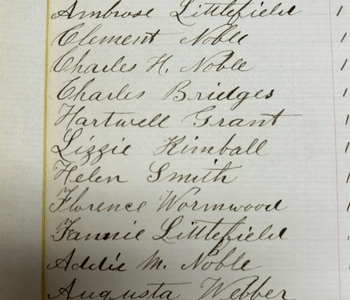 Ambrose Littlefield 1
Clement Noble
Charles H. Noble 1
Charles Bridges 1
Hartwell Grant 1
Lizzie Kimball 1
Helen Smith 1
Florence Wormwood 1
Fannie Littlefield 1
Addie M. Noble
Augusta Webber 1